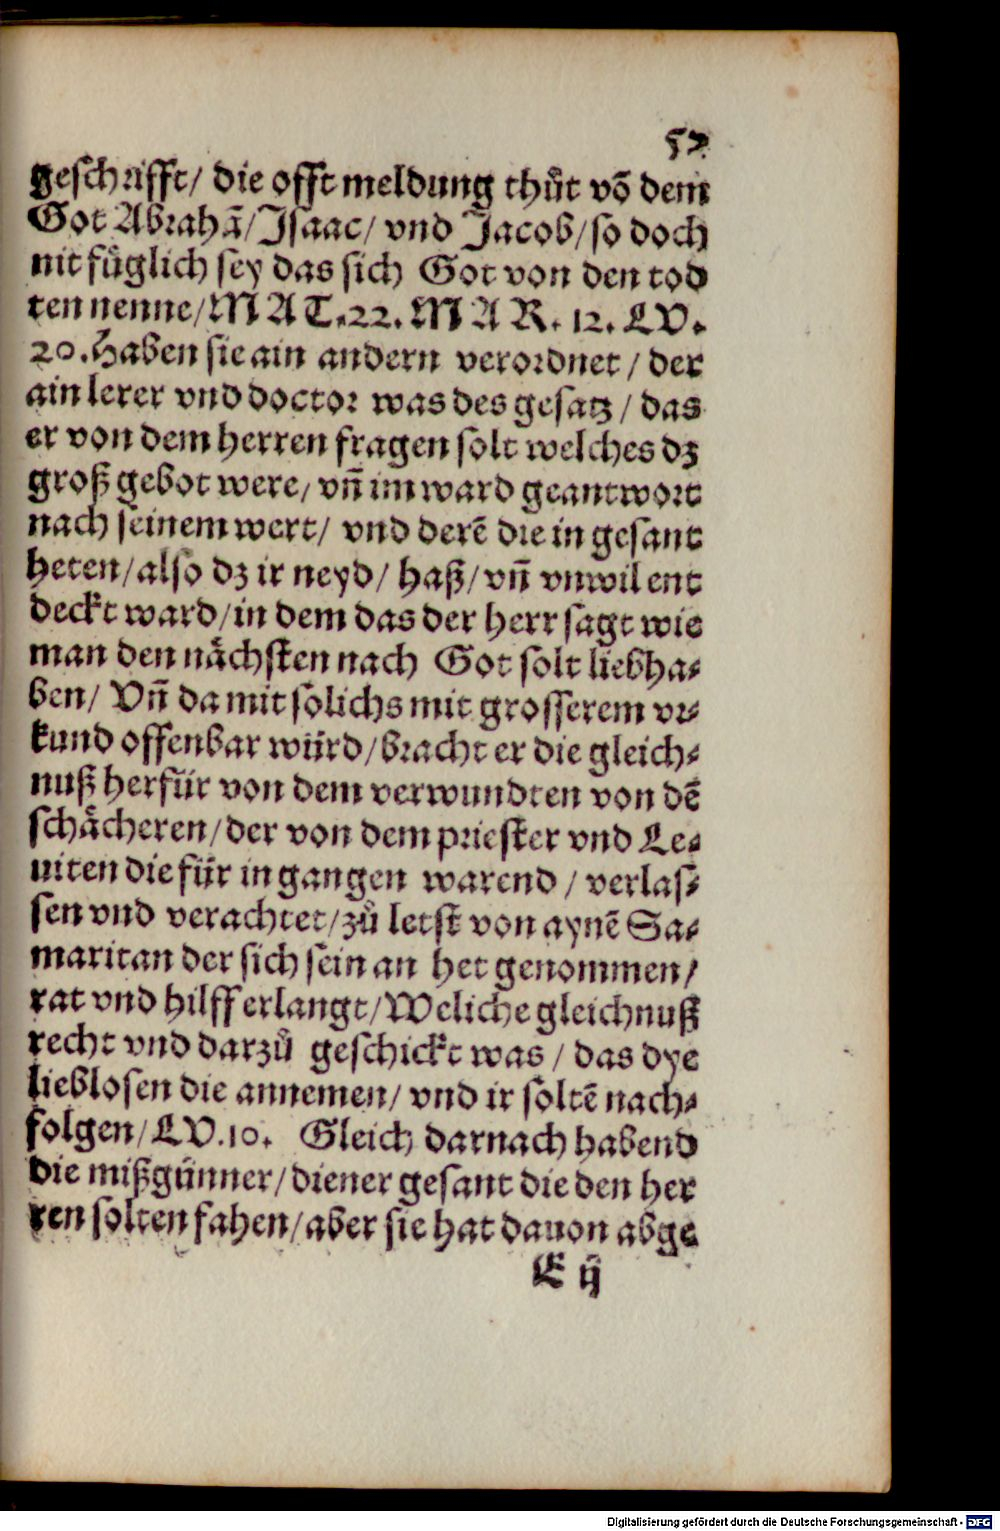 52
geschrifft/ die offt meldung thůt võ dem
Got Abrahã/ Isaac/ vnd Jacob/ so doch
nit fůglich sey das sich Got von den tod
ten nenne/ MAT. 22. MAR. 12. LV.
20. Haben sie ain andern verordnet / der
ain lerer vnd doctor was des gesatz / das
er von dem herren fragen solt welches dz
groß gebot were/ vñ im ward geantwort
nach seinem wert/ vnd derẽ die in gesant
heten/ also dz ir neyd/ haß/ vñ vnwil ent
deckt ward/ in dem das der herr sagt wie
man den nächsten nach Got solt liebha⸗
ben/ Vñ da mit solichs mit grosserem vr⸗
kund offenbar würd/ bracht er die gleich⸗
nuß herfür von dem verwundten von dẽ
schächeren/ der von dem priester vnd Le⸗
uiten die für in gangen warend / verlas⸗
sen vnd verachtet/ zů letst von aynẽ Sa⸗
maritan der sich sein an het genommen/
rat vnd hilff erlangt/ Weliche gleichnuß
recht vnd darzů geschickt was / das dye
lieblosen die annemen/ vnd ir soltẽ nach⸗
folgen/ LV. 10. Gleich darnach habend
die mißgünner/ diener gesant die den her
ren solten fahen/ aber sie hat dauon abge
E ij
Digitalisierung gefördert durch die Deutsche Forschungsgemeinschaft - DFG